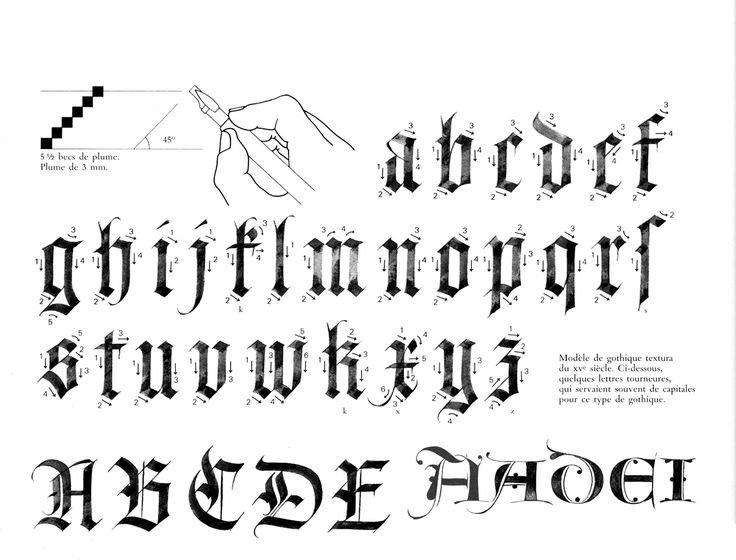 45°
5 ½ becs de plume.
Plume de 3 mm.
a b c d e f
g h i j k l m n o p q r ſ
k s
s t u v w k x y z
k x z
Modèle de gothique textura
du XVe siècle. Ci-dessous,
quelques lettres tourneures,
qui servaient souvent de capitales
pour ce type de gothique.
A B C D E A A D E I